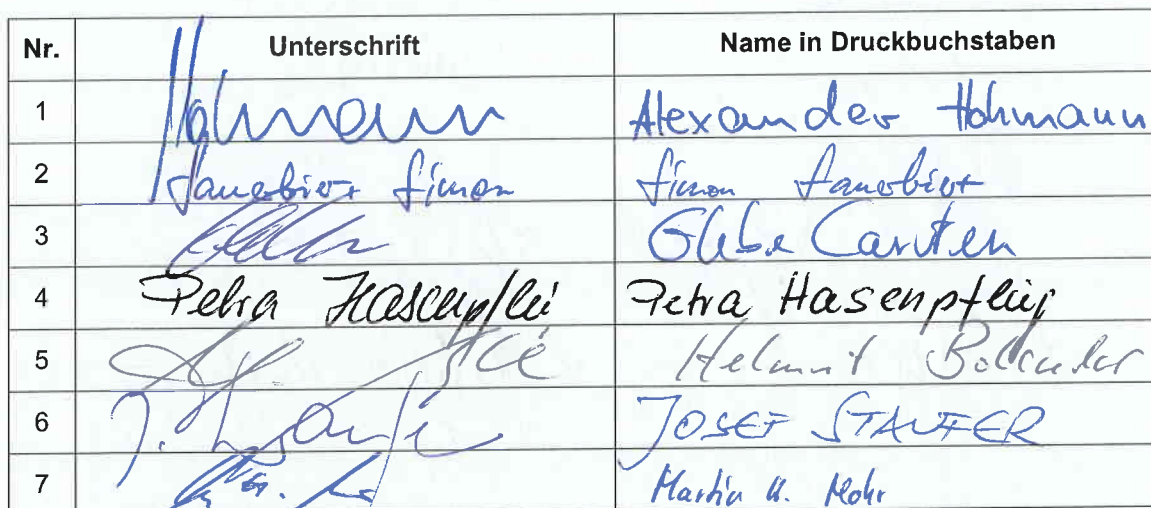 Nr. Unterschrift Name in Druckbuchstaben
1 Hohmann Alexander Hohmann
2 Sauerbier Simon Simon Sauerbier
3 Carsten
4 Petra Hasenpflug Petra Hasenpflug
5 Helmut
6 JOSEF STAUFER
7 Martin H. Mohr